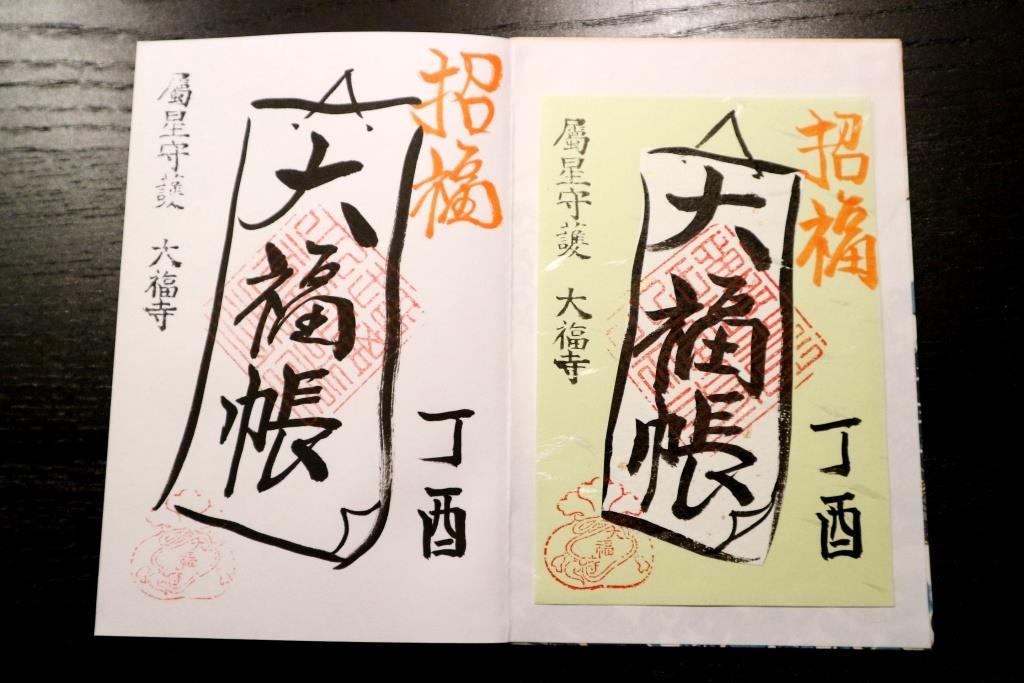 招福
大福帳
丁酉
屬星守護 大福寺
大福寺
招福
大福帳
丁酉
屬星守護 大福寺
大福寺